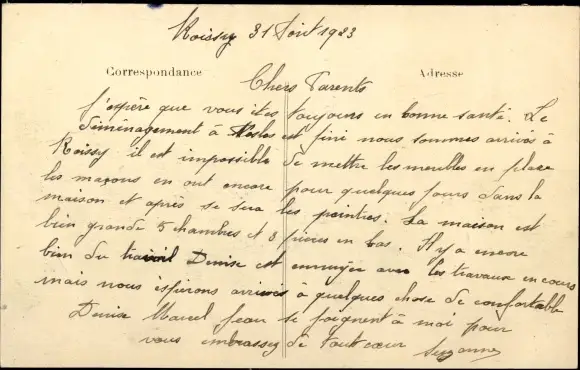 Roissy 31 Août 1923
Correspondance
Adresse
Chers Parents
J'espère que vous êtes toujours en bonne santé. Le
déménagement à Nesles est fini nous sommes arrivés à
Roissy il est impossible de mettre les meubles en place
les maçons en ont encore pour quelques jours dans la
maison et après se sera les peintres. La maison est
bien grande 5 chambres et 3 pièces en bas. Il y a encore
bien du travail Denise est ennuyée avec les travaux en cours
mais nous espérons arriver à quelques chose de confortable
Denise Marcel Jean se joignent à moi pour
vous embrasser de tout cœur Suzanne